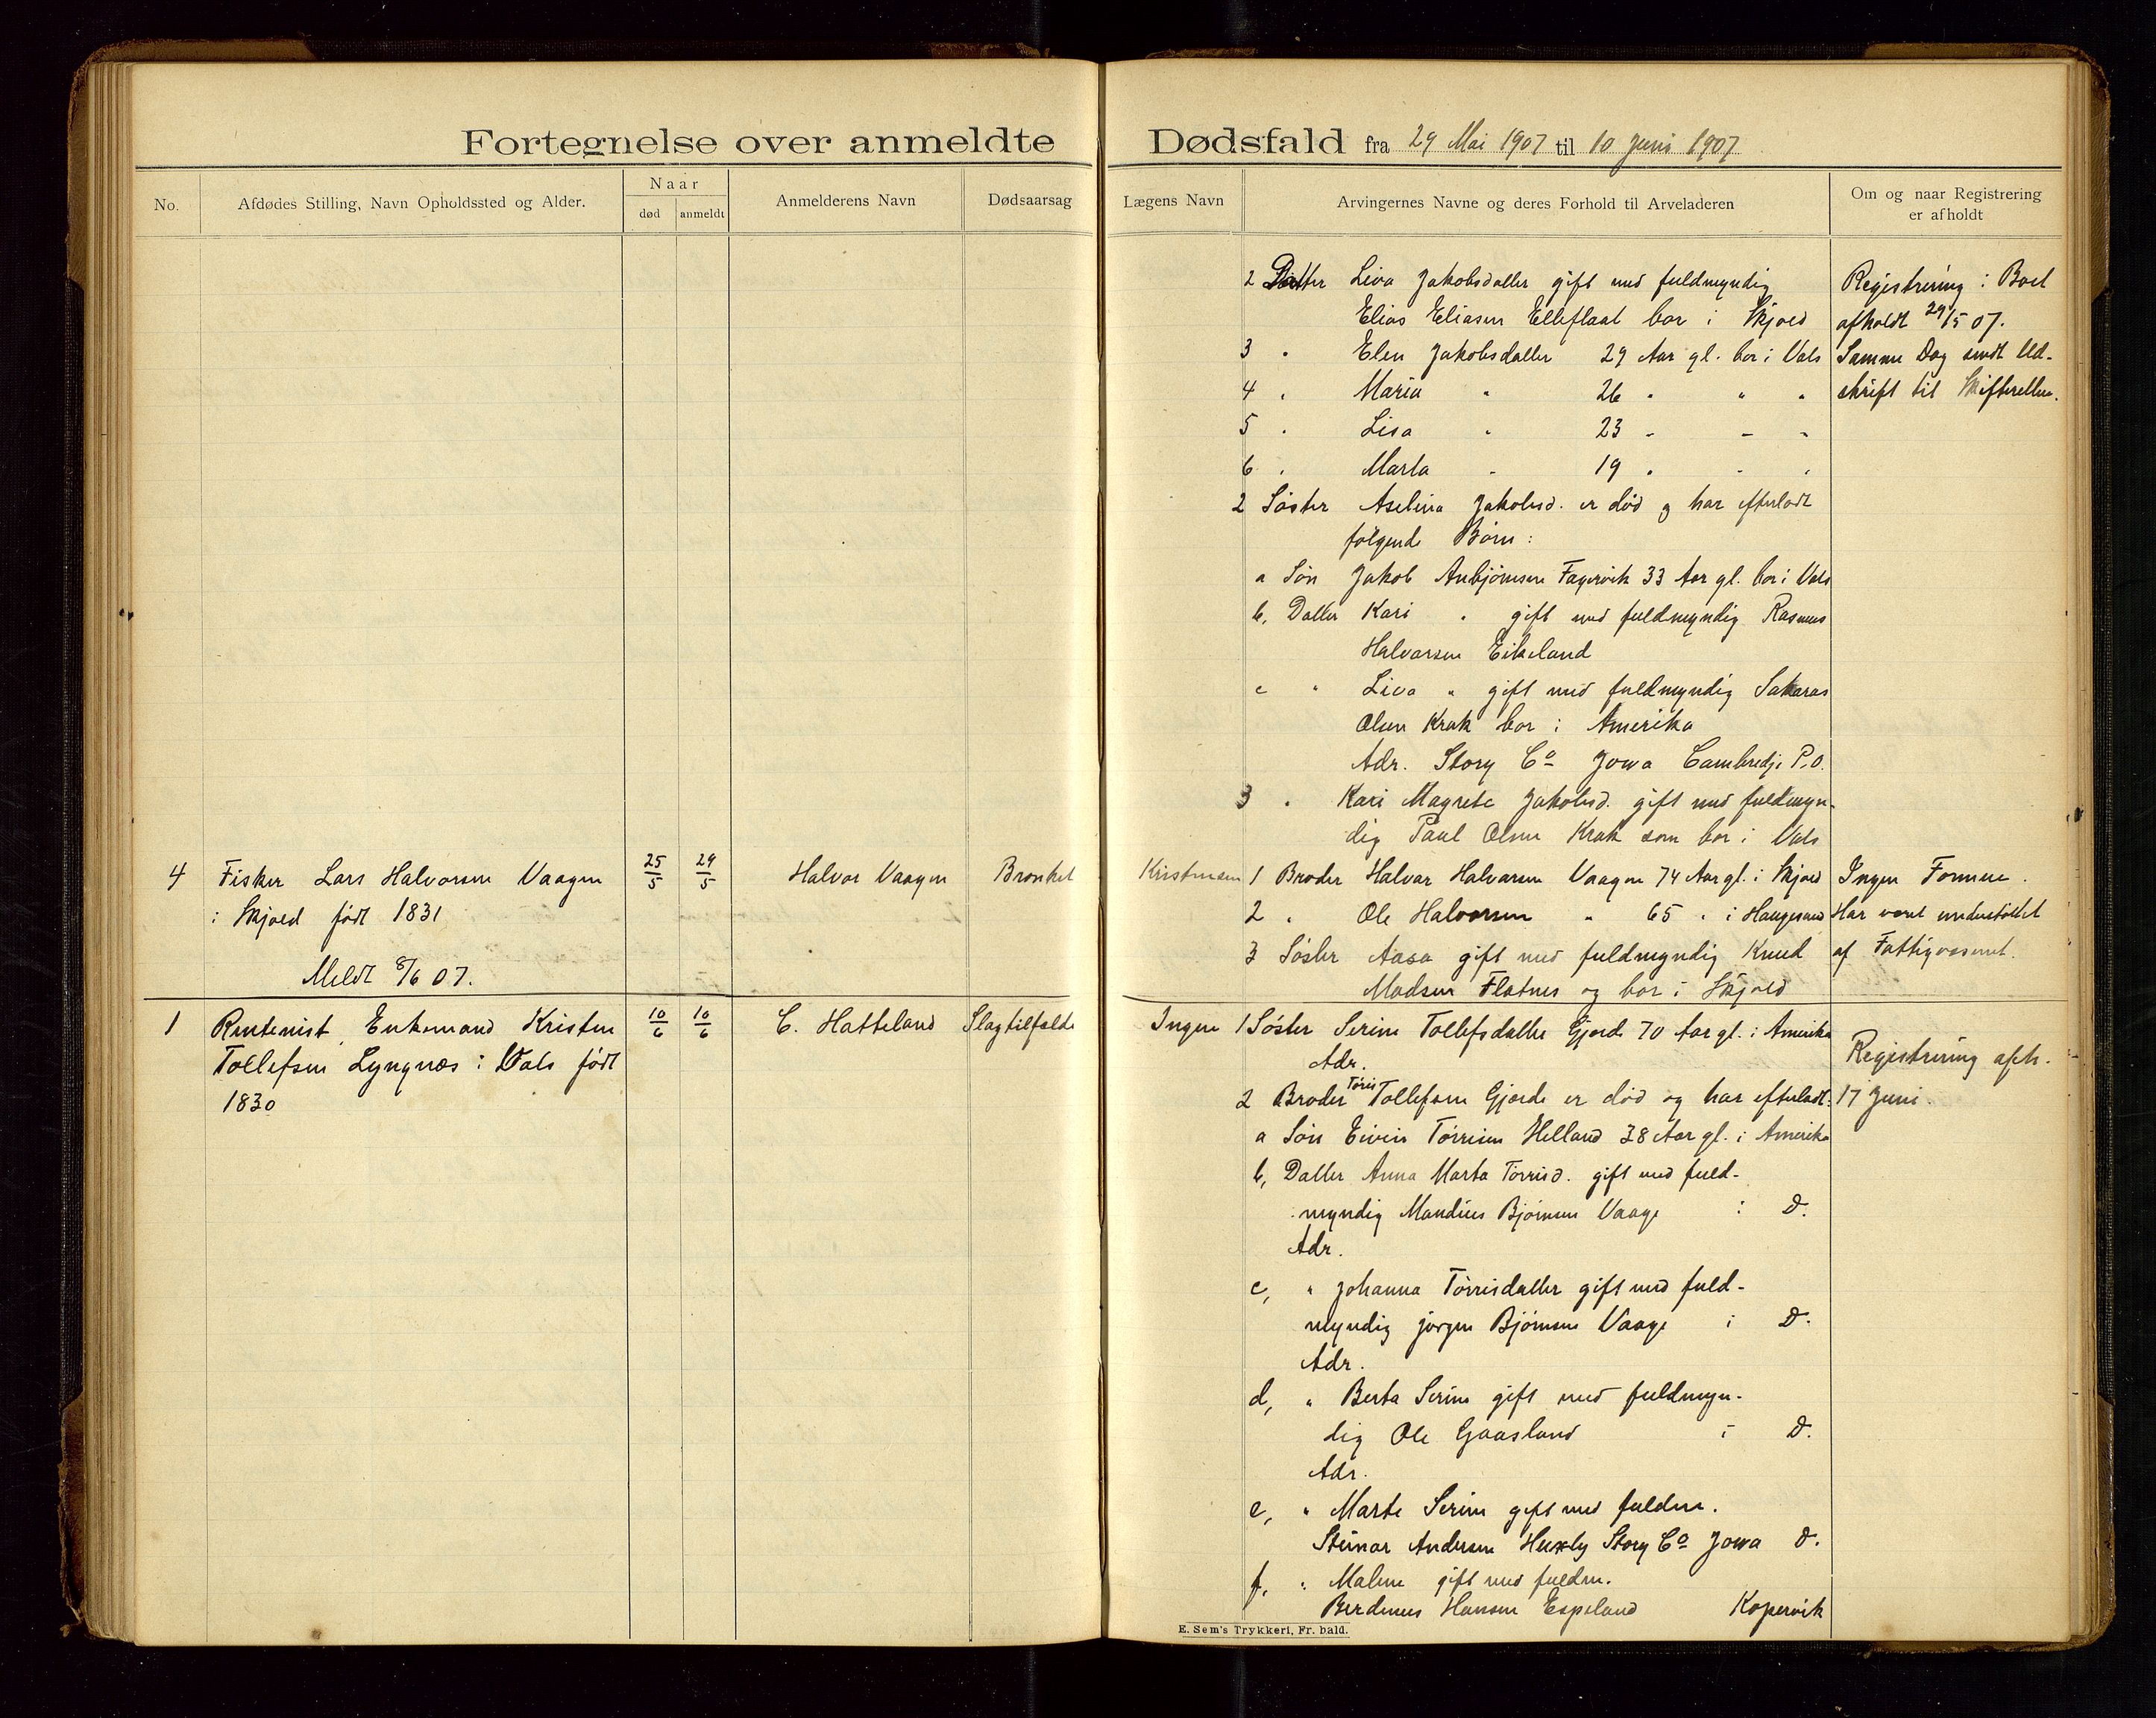 Fortegnelse over anmeldte Dødsfald fra 29 Mai 1907 til 10 Juni 1907
No.
Afdødes Stilling, Navn Opholdssted og Alder.
Naar
død
anmeldt
Anmelderens Navn
Dødsaarsag
Lægens Navn
Arvingernes Navne og deres Forhold til Arveladeren
Om og naar Registrering
er afholdt
2 Datter Liva Jakobsdatter gift med fuldmyndig
Elias Eliasen Elleflaat bor i Skjold
3 " Elen Jakobsdatter 29 Aar gl. bor i Vats
4 " Maria " 26 " " "
5 " Lisa " 23 " " "
6 " Marta " 19 " " "
2 Søster Aselina Jakobsd. er død og har efterladt
følgende Børn:
a Søn Jakob Anbjørnsen Fagervik 33 Aar gl. bor i Vats
b, Datter Kari " gift med fuldmyndig Rasmus
Halvorsen Eikeland
c " Liva " gift med fuldmyndig Sakarias
Olsen Krak bor i Amerika
Adr. Story Co Jowa Cambredje P.O.
3 " Kari Magrete Jakobsd. gift med fuldmyn-
dig Paul Olsen Krak som bor i Vats
Registrering i Boet
afholdt 29/5 07.
Samme Dag sendt Ud-
skrift til Skifteretten.
4 Fisker Lars Halvorsen Vaagen
i Skjold født 1831
Meldt 8/6 07.
25/5
29/5
Halvor Vaagen
Bronkit
Kristensen
1 Broder Halvar Halvarsen Vaagen 74 Aar gl. i Skjold
2 " Ole Halvorsen " 65 " i Haugesund
3 Søster Aasa gift med fuldmyndig Knud
Madsen Flatnes og bor i Skjold
Ingen Formue.
Har været understøttet
af Fattigvæsenet.
1 Rentenist, Enkemand Kristen
Tollefsen Lyngnæs i Vats født
1830
10/6
10/6
C. Hatteland
Slagtilfælde
Ingen
1 Søster Serine Tollefsdatter Gjerde 70 Aar gl. i Amerika
Adr.
2 Broder Tóris Tollefsen Gjerde er død og har efterladt:
a Søn Eivin Tórrisen Helland 38 Aar gl. i Amerika
b, Datter Anna Marta Tórrisd. gift med fuld-
myndig Mandius Bjørnsen Vaage i D.
Adr.
c, " Johanna Tórrisdatter gift med fuld-
myndig Jørgen Bjørnsen Vaage i D.
Adr.
d, " Berta Serine gift med fuldmyn-
dig Ole Gaasland i D.
Adr.
e, " Marte Serine gift med fuldm.
Steinar Andersen Huxly Story Co Jowa D.
f, " Malene gift med fuldm.
Berdines Hansen Espeland Kopervik
Registrering afh.
17 Juni.
E. Sem's Trykkeri, Fr. hald.